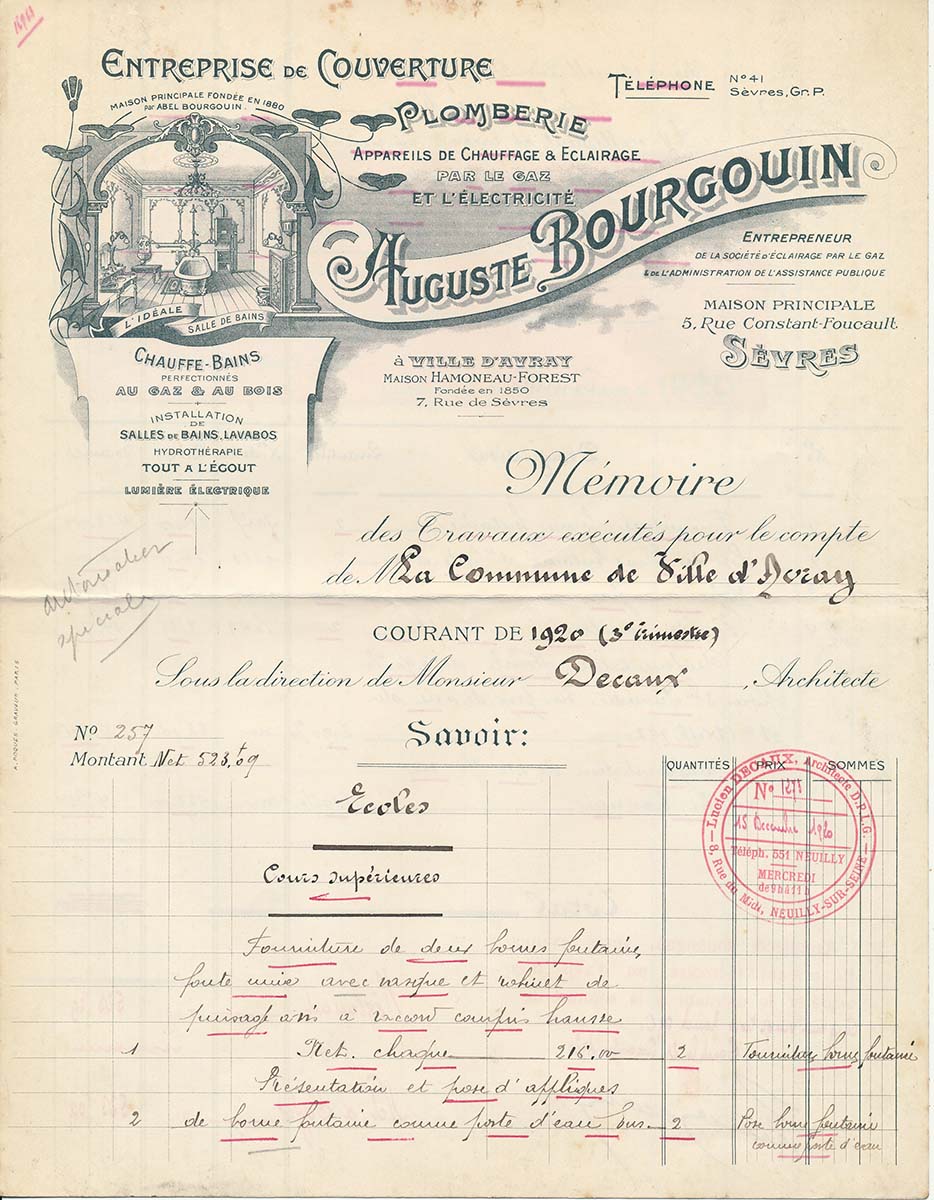 ENTREPRISE DE COUVERTURE
PLOMBERIE
APPAREILS DE CHAUFFAGE & ECLAIRAGE
PAR LE GAZ
ET L'ÉLECTRICITÉ
TÉLÉPHONE N° 41
Sèvres, Gr. P.
MAISON PRINCIPALE FONDÉE EN 1880
par ABEL BOURGOUIN.
AUGUSTE BOURGOUIN
ENTREPRENEUR
DE LA SOCIÉTÉ D'ÉCLAIRAGE PAR LE GAZ
& DE L'ADMINISTRATION DE L'ASSISTANCE PUBLIQUE
MAISON PRINCIPALE
5, Rue Constant-Foucault
SÈVRES
L'IDÉALE
SALLE DE BAINS
CHAUFFE-BAINS
PERFECTIONNÉS
AU GAZ & AU BOIS
INSTALLATION
DE
SALLES DE BAINS, LAVABOS
HYDROTHÉRAPIE
TOUT A L'ÉGOUT
LUMIÈRE ÉLECTRIQUE
à VILLE D'AVRAY
MAISON HAMONEAU-FOREST
Fondée en 1850
7, Rue de Sèvres
Mémoire
des Travaux exécutés pour le compte
de M La Commune de Ville d'Avray
COURANT DE 1920 (3e trimestre)
Sous la direction de Monsieur Decaux, Architecte
N° 257
Montant Net 523.f09
Savoir:
QUANTITÉS PRIX SOMMES
Lucien DECAUX, Architecte D.P.L.G.
8, Rue du Midi, NEUILLY-SUR-SEINE
N° 1278
15 Decembre 1920
Téléph. 551 NEUILLY
MERCREDI
de 9h à 11h
Ecoles
Cours supérieures
Fourniture de deux bornes fontaine,
fonte unie avec vasque et robinet de
puisage à raccord compris hausse
1 Net. chaque 216.00 2 Fourniture borne fontaine
Présentation et pose d'appliques
2 de borne fontaine comme poste d'eau 2 Pose borne fontaine
comme poste d'eau
spéciale